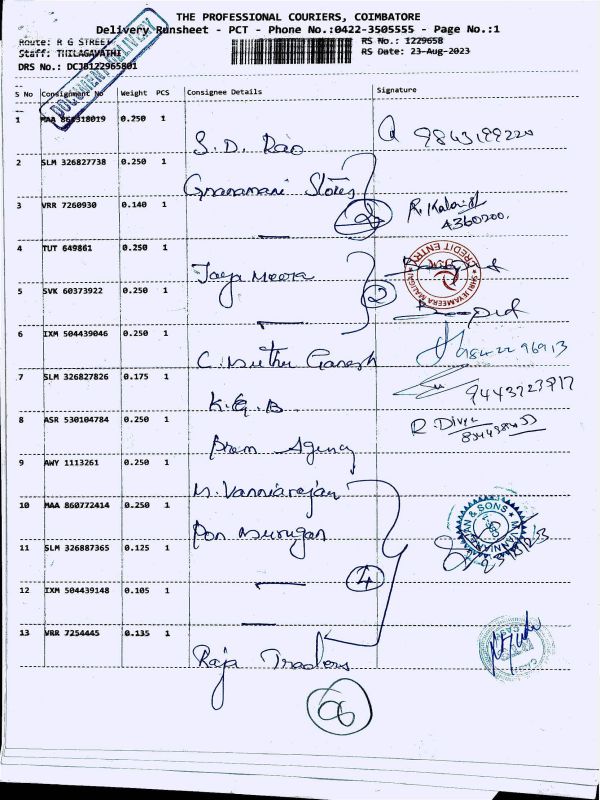 THE PROFESSIONAL COURIERS, COIMBATORE
Delivery Runsheet - PCT - Phone No.:0422-3505555 - Page No.:1
Route: R G STREET
RS No.: 1229658
Staff: THILAGAVATHI
RS Date: 23-Aug-2023
DRS No.: DCJB122965801
DOCUMENT DELIVERY
S No Consignment No Weight PCS Consignee Details Signature
1 MAA 860318019 0.250 1
S. D. Rao 9843199220
2 SLM 326827738 0.250 1
Gnanamani Stores
3 VRR 7260930 0.140 1
2 R. Kalavathi 4360200.
4 TUT 649861 0.250 1
Jaya Meera
CREDIT ENTRY
5 SVK 60373922 0.250 1
2
6 IXM 504439046 0.250 1
C. Muthu Ganesh 9842296913
7 SLM 326827826 0.175 1
K.G.B. 9443723917
8 ASR 530104784 0.250 1
Prem Agency R. Divya
9 AWY 1113261 0.250 1
M. Vanniarajan
10 MAA 860772414 0.250 1
Pon Murugan
M. VANNIARAJAN & SONS
11 SLM 326887365 0.125 1
4
12 IXM 504439148 0.105 1
13 VRR 7254445 0.135 1
Raja Traders